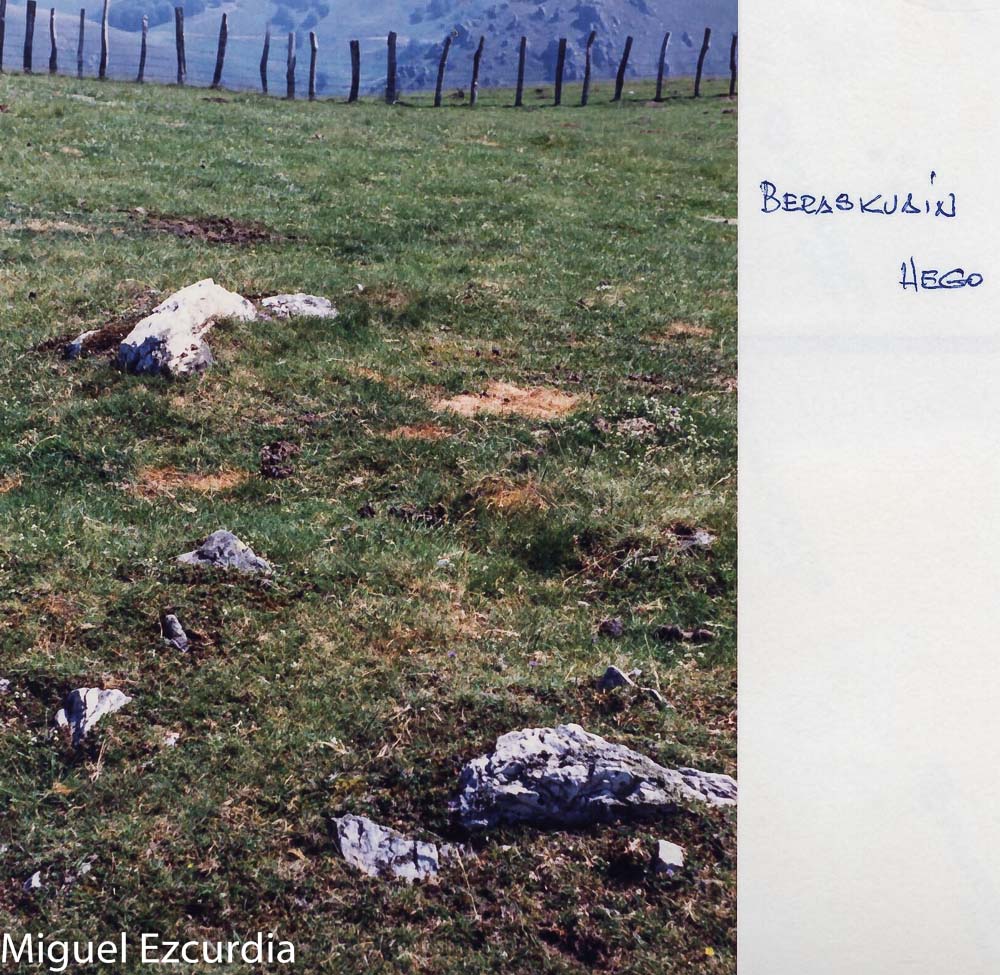 BERASKUAIN
HEGO
Miguel Ezcurdia